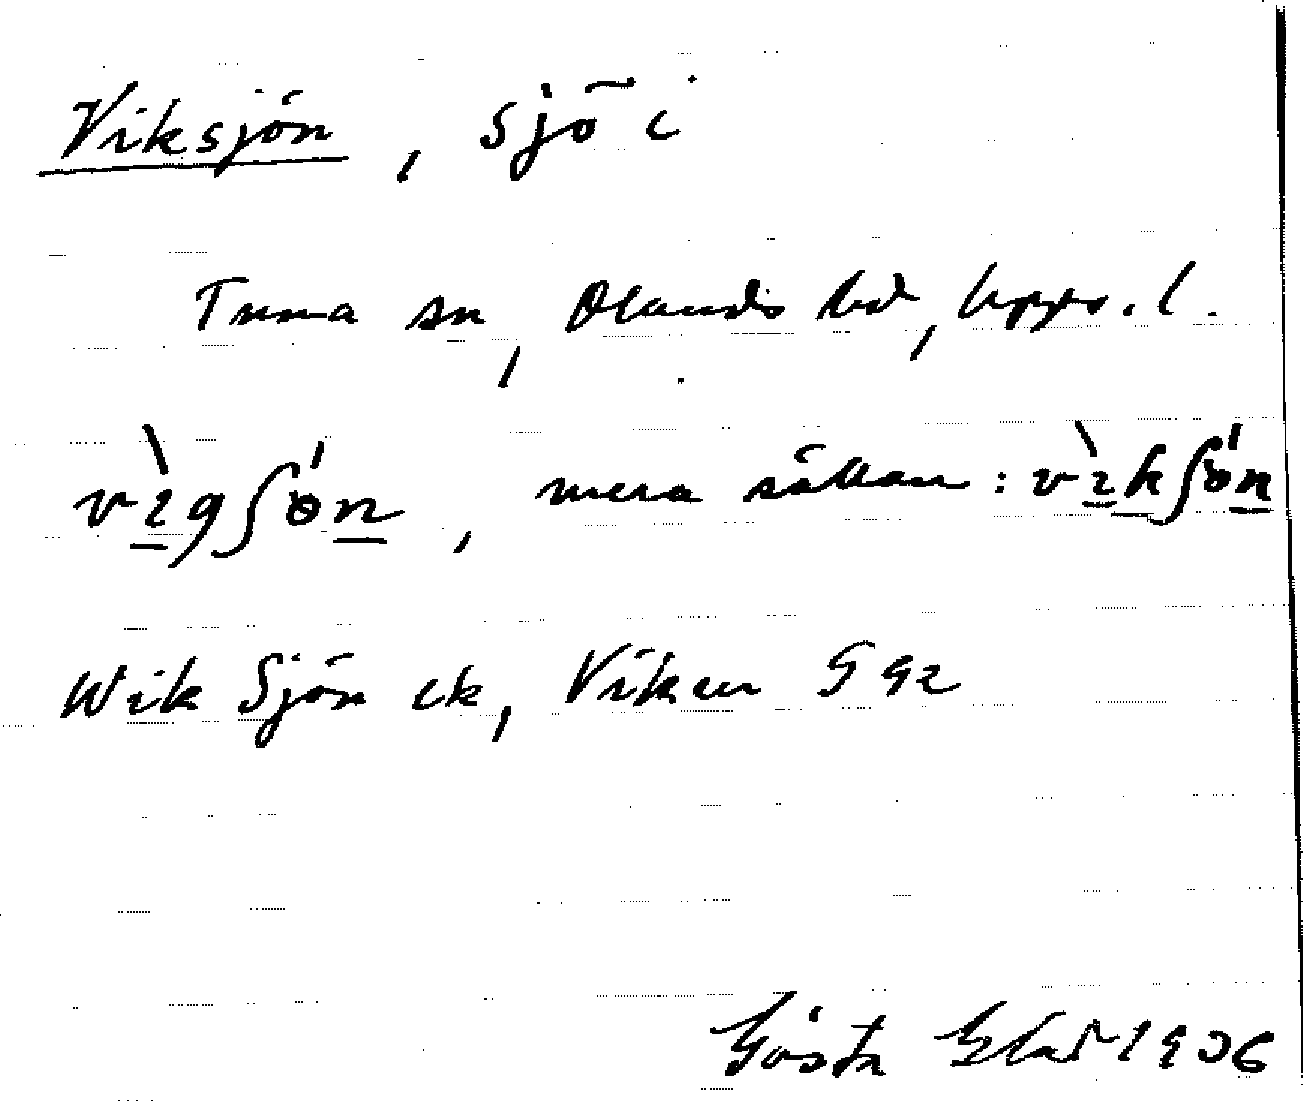 Viksjön, sjö i
Tuna sn, Olands hd, Upps. l.
vìgʃön, mera sällan: vìkʃön
Wik Sjön ek, Viken G 92
Gösta 1936